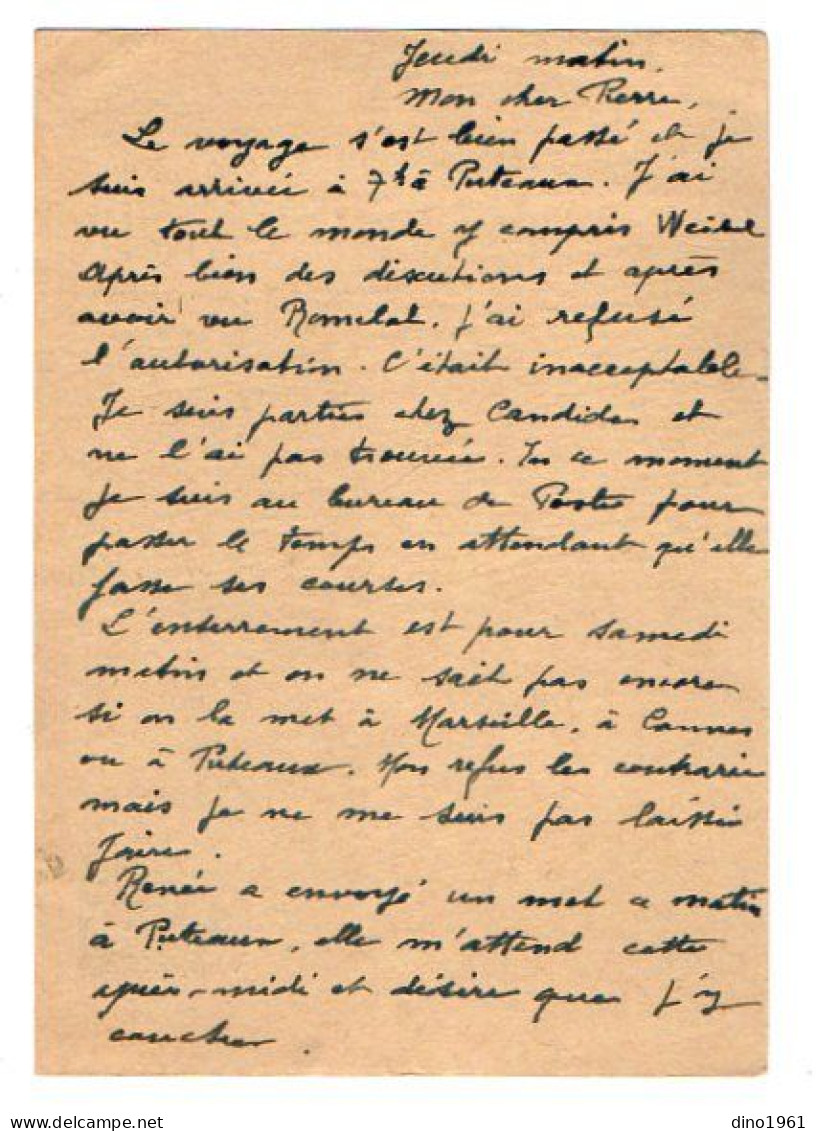 Jeudi matin,
Mon cher Pierre,
Le voyage s'est bien passé et je
suis arrivée à 7h à Puteaux. J'ai
vu tout le monde y compris
Après bien des discutions et après
avoir vu j'ai refusé
l'autorisation. C'était inacceptable.
Je suis partie chez Candide et
ne l'ai pas trouvée. En ce moment
je suis au bureau de Poste pour
passer le temps en attendant qu'elle
fasse ses courses.
L'enterrement est pour samedi
matin et on ne sait pas encore
si on la met à Marseille, à Cannes
ou à Puteaux. Mon refus les contrarie
mais je ne me suis pas laissée
faire.
Renée a envoyé un mot ce matin
à Puteaux, elle m'attend cette
après-midi et désire que j'y
couche.
delcampe.net
dino1961